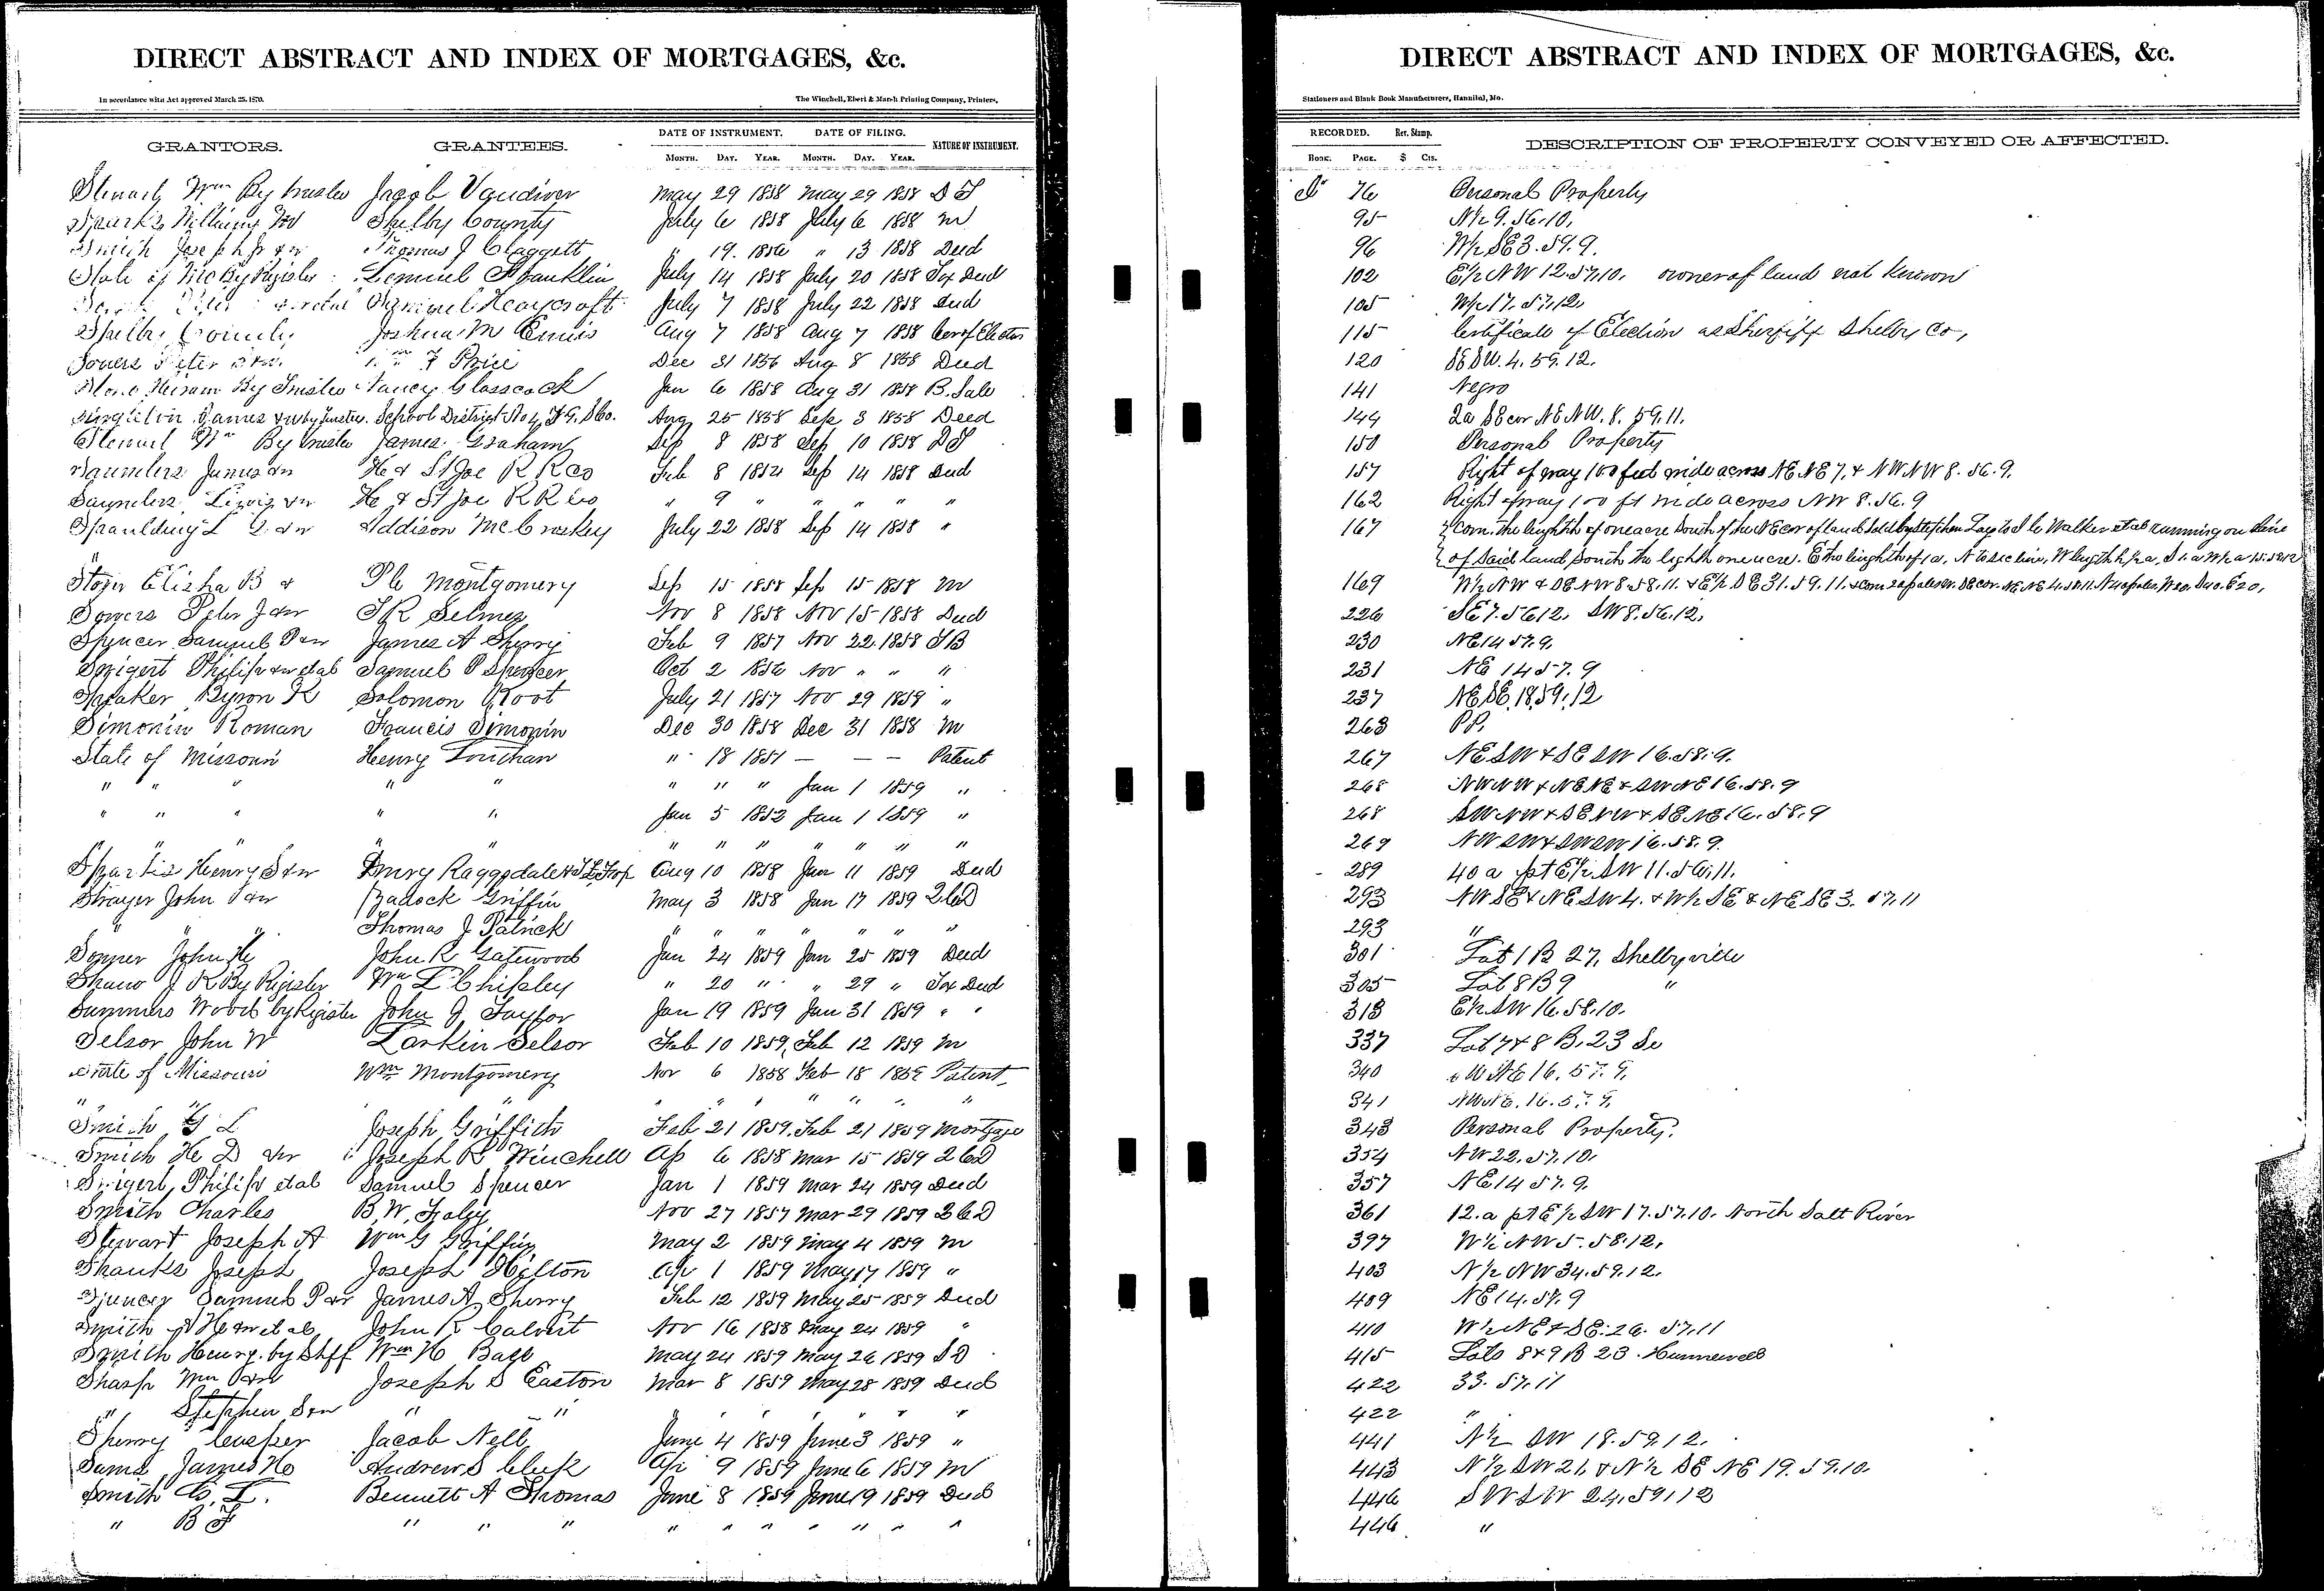 DIRECT ABSTRACT AND INDEX OF MORTGAGES, &c.
In accordance with Act approved March 25, 1870. The Winchell, Ebert & Marsh Printing Company, Printers,
GRANTORS. GRANTEES. DATE OF INSTRUMENT. DATE OF FILING. NATURE OF INSTRUMENT.
MONTH. DAY. YEAR. MONTH. DAY. YEAR.
Wm By trustee Jacob Vandiver May 29 1858 May 29 1858 D T
Shelby County July 6 1858 July 6 1858 M
Smith Joseph Thomas J Claggett " 19. 1856 " 13 1858 Deed
State of Mo By Register Lemuel Franklin July 14 1858 July 20 1858 Tax Deed
Samuel Heaycroft July 7 1858 July 22 1858 Deed
Shelby County Joshua M Ennis Aug 7 1858 Aug 7 1858 Cer of Election
Sowers Peter Price Dec 31 1856 Aug 8 1858 Deed
Hiram By Trustee Nancy Glasscock Jan 6 1858 Aug 31 1858 B. Sale
Singleton James School District No 4, Aug 25 1858 Sep 3 1858 Deed
Wm By trustee James Graham Sep 8 1858 Sep 10 1858 D T
Saunders James & w H & St Joe R R Co Feb 8 1854 Sep 14 1858 Deed
Saunders Lewis & w H & St Joe R R Co " 9 " " " " "
Spaulding L & w Addison McCroskey July 22 1858 Sep 14 1858 "
Elisha B & Montgomery Sep 15 1858 Sep 15 1858 M
Sowers Peter J & w T R Selmes Nov 8 1858 Nov 15 1858 Deed
Spencer Samuel P & w James A Sherry Feb 9 1857 Nov 22 1858 T B
Swigert Philip & w et al Samuel P Spencer Oct 2 1856 Nov " " "
Byron K Solomon Root July 21 1857 Nov 29 1859 "
Simonin Roman Francis Simonin Dec 30 1858 Dec 31 1858 M
State of Missouri Henry Louthan " 18 1851 — — — Patent
" " " " " " " " Jan 1 1859 "
" " " " " Jan 5 1852 Jan 1 1859 "
" " " " " " " " " " " "
Henry S & w Aug 10 1858 Jan 11 1859 Deed
Strayer John & w Zadock Griffin May 3 1858 Jan 17 1859 2 C D
" " Thomas J Patrick " " " " " " "
John H John R Gatewood Jan 24 1859 Jan 25 1859 Deed
J R By Register Wm L Chipley " 20 " " 29 " Tax Deed
Summers Wood by Register John J Taylor Jan 19 1859 Jan 31 1859 " "
Selsor John W Larkin Selsor Feb 10 1859 Feb 12 1859 M
State of Missouri Wm Montgomery Nov 6 1858 Feb 18 1859 Patent
" " " " " " " " "
Smith G L Joseph Griffith Feb 21 1859 Feb 21 1859 Mortgage
Smith H D & w Joseph Winchell Ap 6 1858 Mar 15 1859 2 C D
Swigert, Philip et al Samuel Spencer Jan 1 1859 Mar 24 1859 Deed
Smith Charles B. W. Nov 27 1857 Mar 29 1859 2 C D
Stewart Joseph A Wm G Griffin May 2 1859 May 4 1859 M
Shanks Joseph Joseph Hilton Ap 1 1859 May 17 1859 "
Spencer Samuel P & w James A Sherry Feb 12 1859 May 25 1859 Deed
Smith et al John R Calvert Nov 16 1858 May 24 1859 "
Smith Henry by Shff Wm H Ball May 24 1859 May 26 1859 S D
Sharp Wm Joseph S Easton Mar 8 1859 May 28 1859 Deed
" Stephen " " " " " " " "
Sherry Jacob Nell June 4 1859 June 3 1859 "
Sams James H Andrew S Cleek Ap 9 1859 June 6 1859 M
Smith C. L. Bennett A Thomas June 8 1859 June 19 1859 Deed
" B F " " " " " " " " " "
DIRECT ABSTRACT AND INDEX OF MORTGAGES, &c.
Stationers and Blank Book Manufacturers, Hannibal, Mo.
RECORDED. Rev. Stamp. DESCRIPTION OF PROPERTY CONVEYED OR AFFECTED.
BOOK. PAGE. $ CTS.
76 Personal Property
95 N½ 9. 56. 10.
96 W½ SE 3. 59. 9.
102 E½ NW 12. 57. 10. owner of land not known
105 W½ 17. 57. 12.
115 Certificate of Election as Sheriff Shelby Co,
120 SE SW. 4. 59. 12.
141 Negro
144 2a SE cor NE NW. 8. 59. 11.
150 Personal Property
157 Right of way 100 feet wide across NE NE 7. & NW NW 8. 56. 9.
162 Right of way 100 ft wide across NW 8. 56. 9
167 Com. the length of one acre South of the NE cor of land sold by Stephen to Walker et al running on line
of said land South the length one acre.
169 W½ NW & SE NW 8. 58. 11. & E½ SE 31. 59. 11.
226 SE 7. 56. 12. SW 8. 56. 12.
230 NE 14 57. 9.
231 NE 14 57. 9
237 NE SE 18. 59. 12
263 P P.
267 NE SW & SE SW 16. 58. 9.
268 NW NW & NE NE & SW NE 16. 58. 9
268 SW NW & SE NW & SE NE 16. 58. 9
269 NW SW & SW SW 16. 58. 9.
289 40 a pt E½ SW 11. 56. 11.
293 NW SE & NE SW 4. & W½ SE & NE SE 3. 57. 11
293 "
301 Lot 1 B 27, Shelbyville
305 Lot 8 B 9 "
313 E½ SW 16. 58. 10.
337 Lot 7 & 8 B. 23 Do
340 SW NE 16. 57. 9.
341 NW NE. 16. 57. 9.
343 Personal Property.
354 NW 22. 57. 10.
357 NE 14 57. 9.
361 12. a pt E½ SW 17. 57. 10. North Salt River
397 W½ NW 5. 58. 12.
403 N½ NW 34. 59. 12.
409 NE 14. 57. 9
410 W½ NE & SE. 26. 57. 11
415 Lots 8 & 9 B 23 Hunnewell
422 33. 57. 11
422 "
441 N½ SW 18. 59. 12.
443 N½ SW 21. & N½ SE NE 19. 59. 10.
446 SW SW 24. 59. 12
446 "